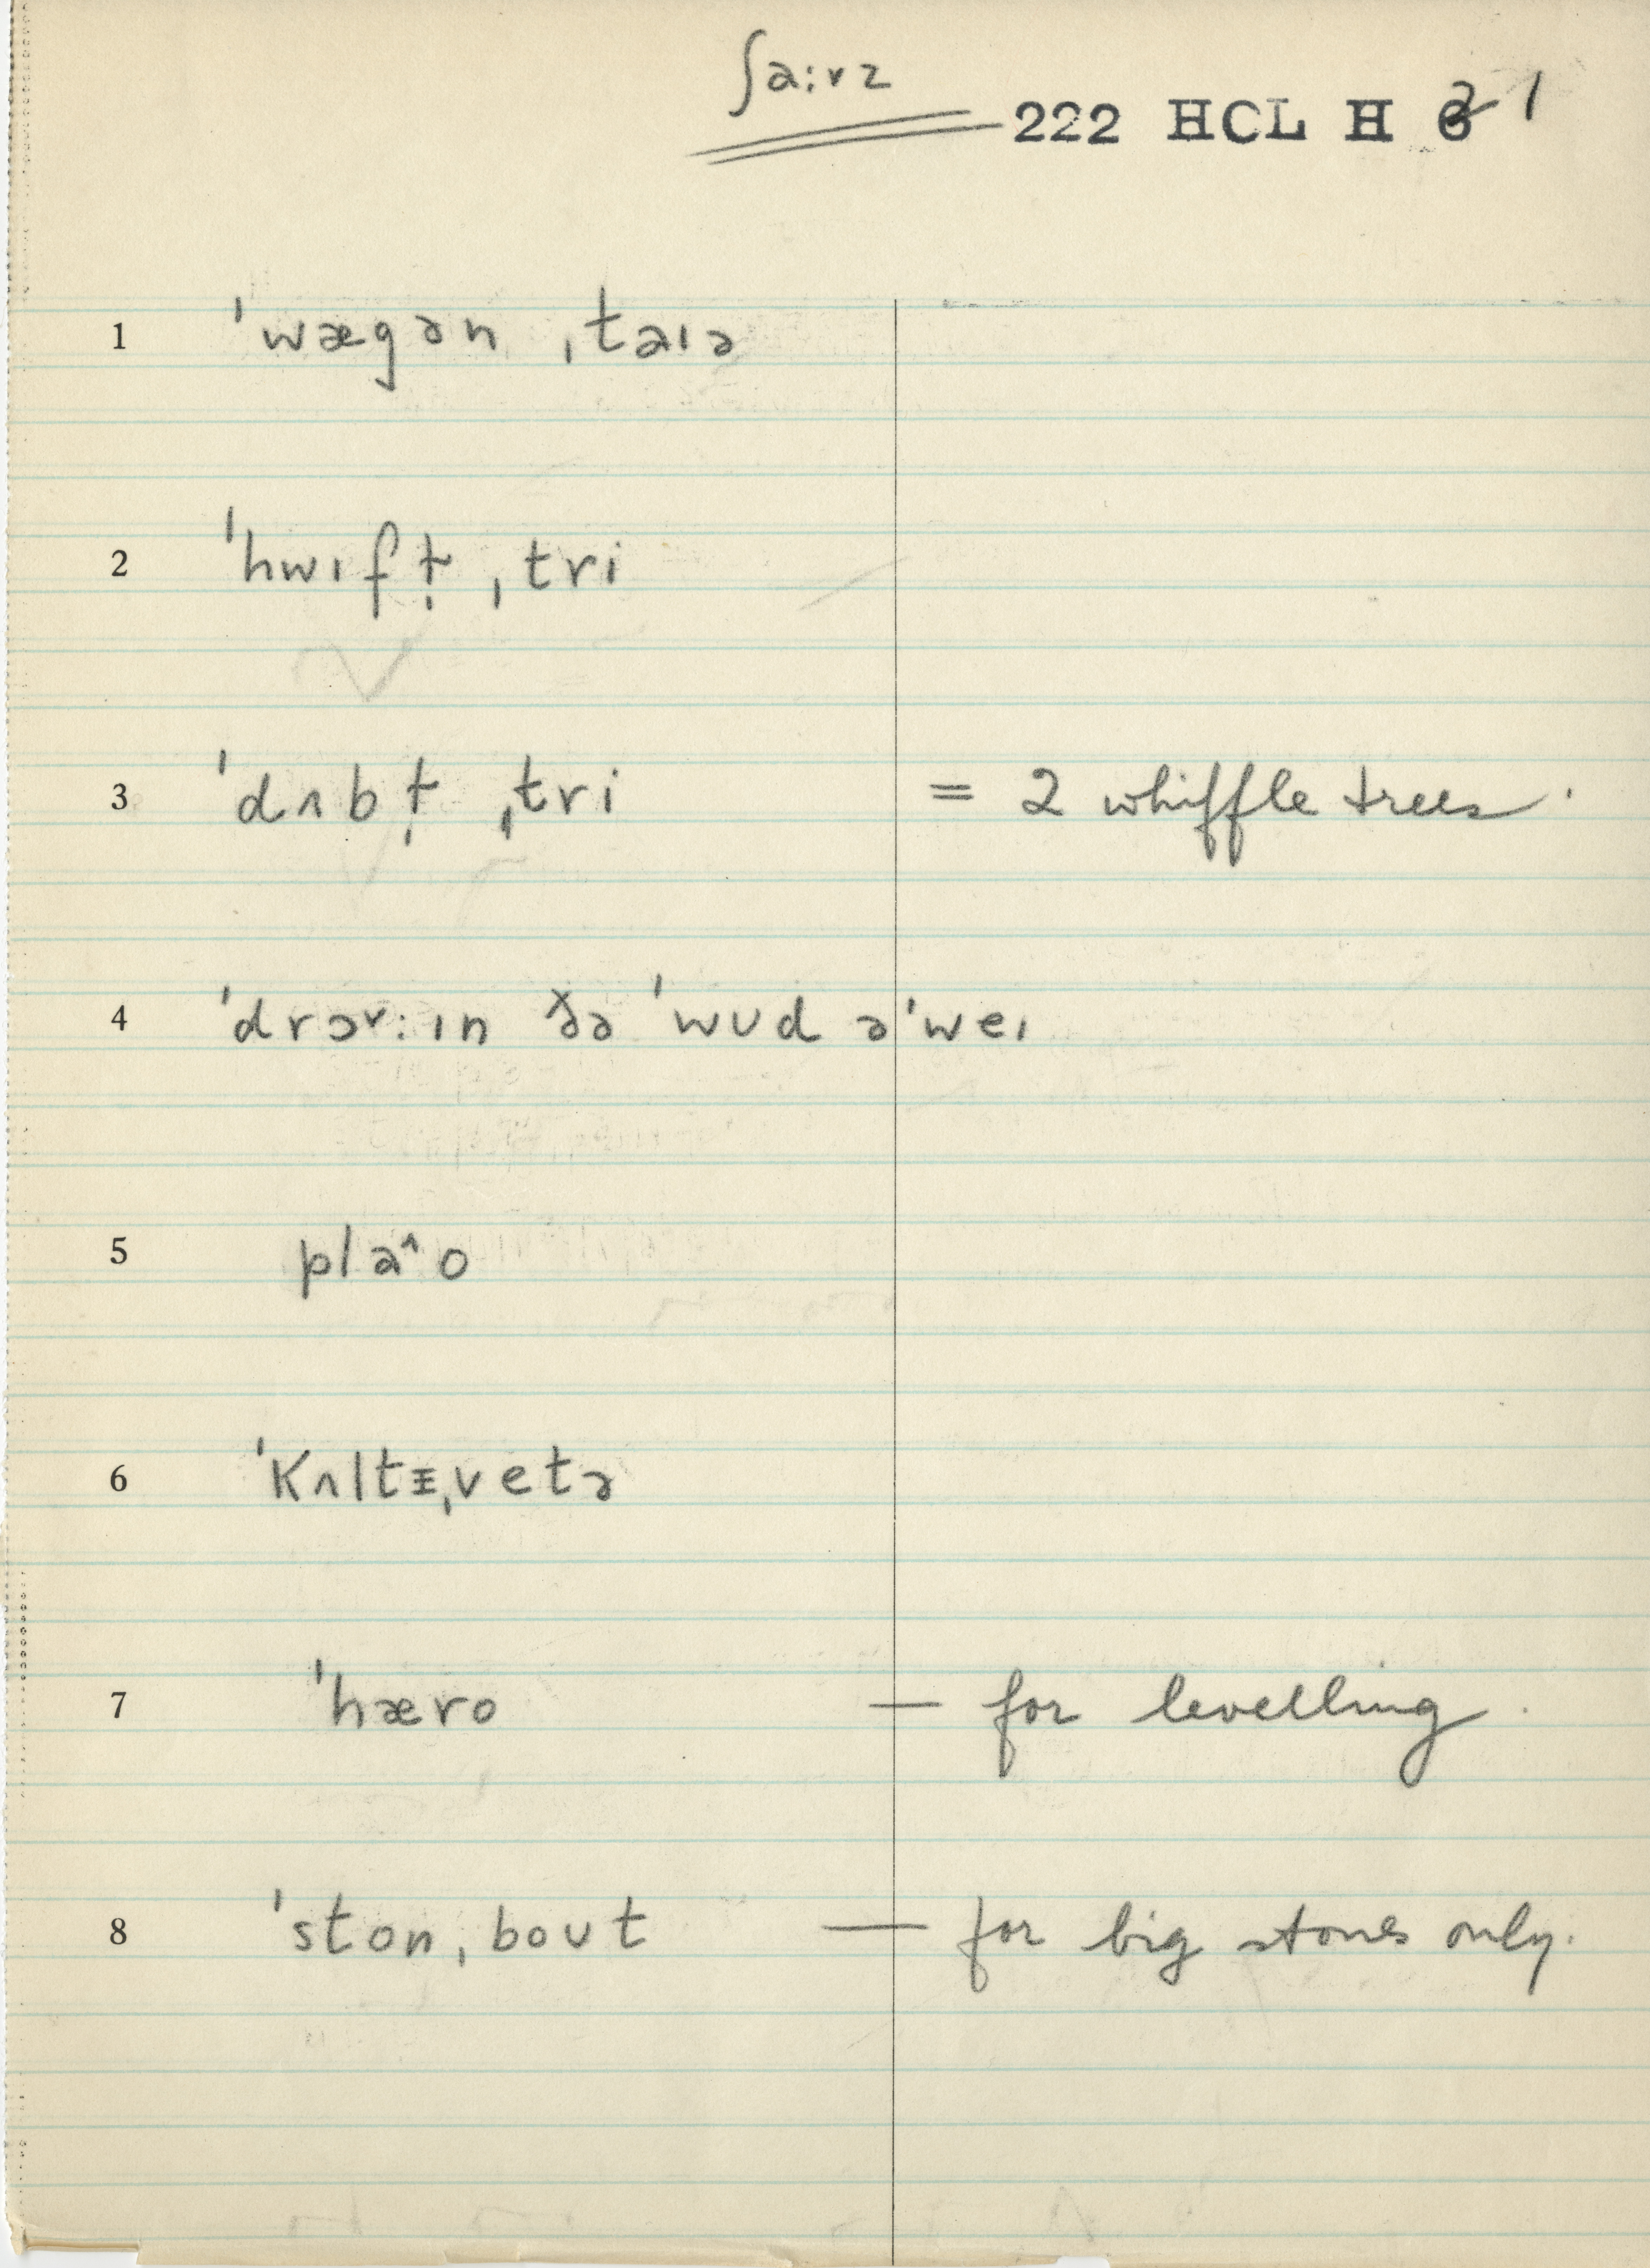 ʃaːvz
222 HCL H 2 1
1 ˈwægən ˌtaɪə
2 ˈhwɪfɫ̩ ˌtri
3 ˈdʌbɫ̩ ˌtri = 2 whiffle trees.
4 ˈdrɔːɪn ðə ˈwʊd əˈweɪ
5 pla^o
6 ˈkʌltɪˌvetə
7 ˈhæro — for levelling.
8 ˈstonˌboʊt — for big stones only.